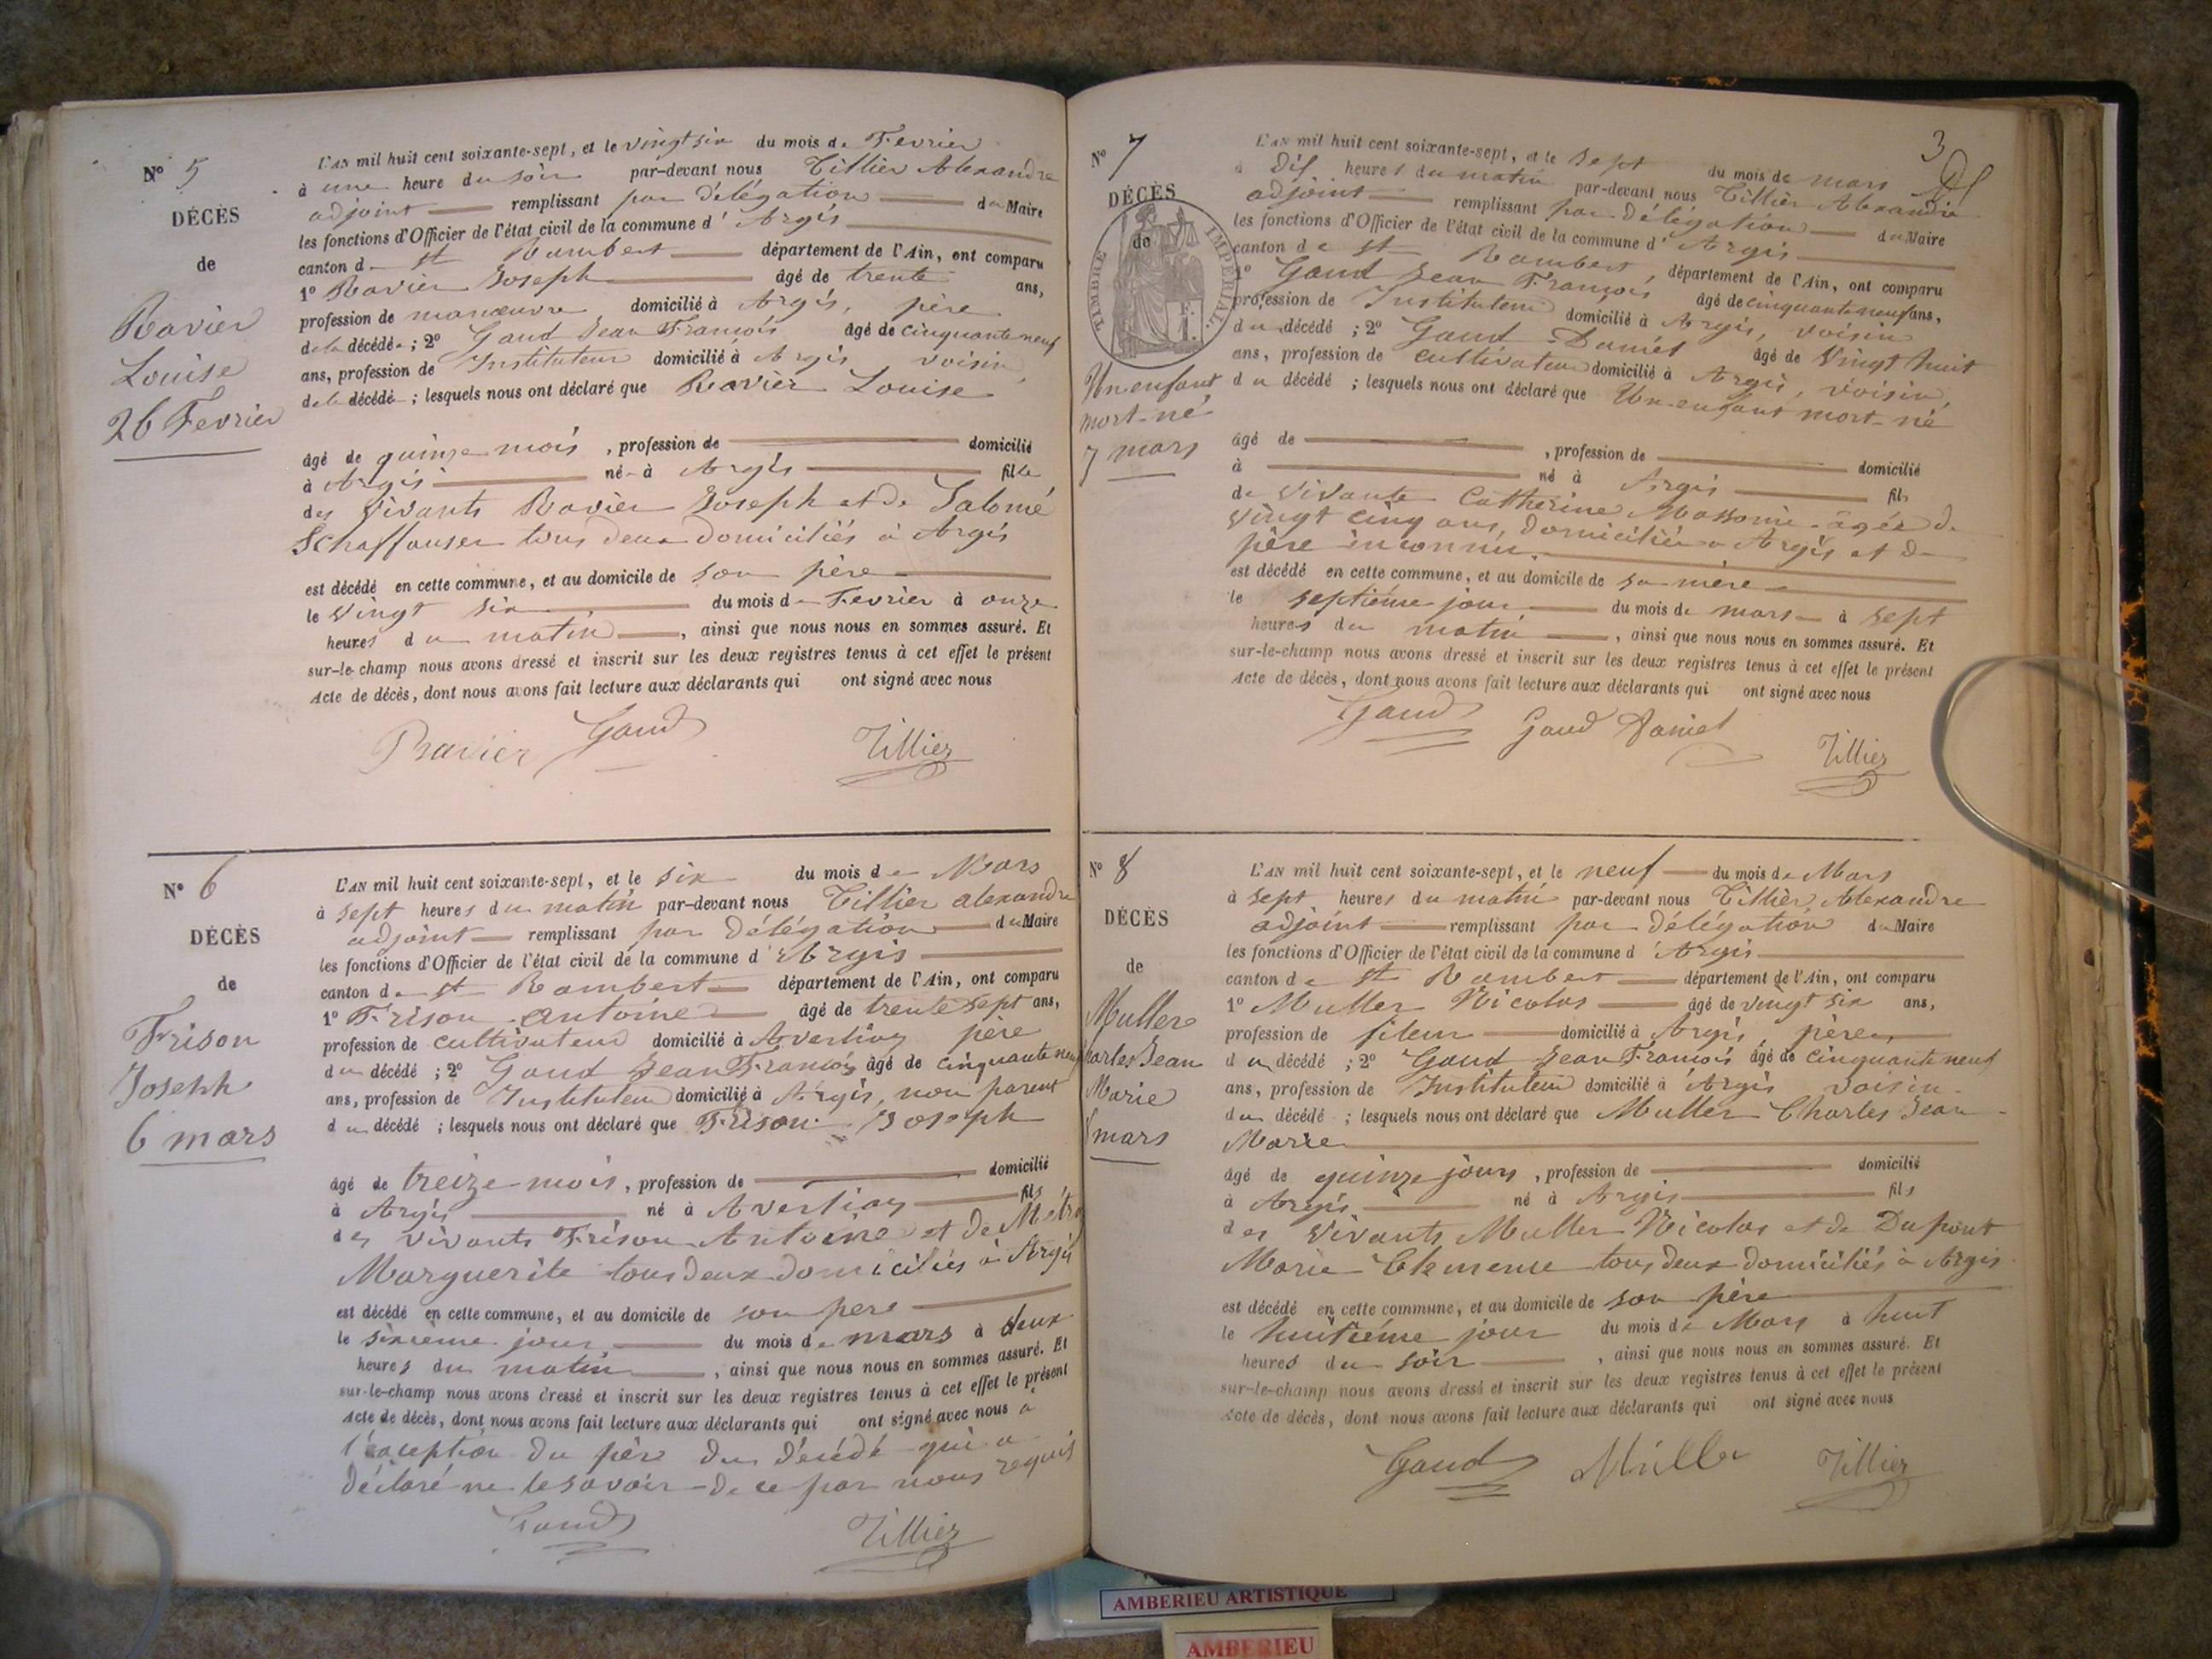 N° 5
DÉCÈS
de
Ravier
Louise
26 Fevrier
L'AN mil huit cent soixante-sept, et le vingt six du mois de Fevrier
à une heure du soir par-devant nous Tillier Alexandre
adjoint remplissant par délégation du Maire
les fonctions d'Officier de l'état civil de la commune d' Argis
canton de st Rambert département de l'Ain, ont comparu
1° Ravier Joseph âgé de trente ans,
profession de manœuvre domicilié à Argis, père
de la décédée ; 2° Gaud Jean François âgé de cinquante neuf
ans, profession de Instituteur domicilié à Argis voisin,
de la décédée ; lesquels nous ont déclaré que Ravier Louise
âgé de quinze mois , profession de domicilié
à Argis né à Argis fille
des vivants Ravier Joseph et de Salomé
Schaffauser tous deux domiciliés à Argis
est décédé en cette commune, et au domicile de son père
le vingt six du mois de Fevrier à onze
heures du matin , ainsi que nous nous en sommes assuré. Et
sur-le-champ nous avons dressé et inscrit sur les deux registres tenus à cet effet le présent
Acte de décès, dont nous avons fait lecture aux déclarants qui ont signé avec nous
Ravier Gaud Tillier
N° 6
DÉCÈS
de
Frison
Joseph
6 mars
L'AN mil huit cent soixante-sept, et le six du mois de Mars
à sept heures du matin par-devant nous Tillier alexandre
adjoint remplissant par délégation du Maire
les fonctions d'Officier de l'état civil de la commune d' Argis
canton de st Rambert département de l'Ain, ont comparu
1° Frison Antoine âgé de trente sept ans,
profession de cultivateur domicilié à père
du décédé ; 2° Gaud Jean François âgé de cinquante neuf
ans, profession de Instituteur domicilié à Argis, non parent
du décédé ; lesquels nous ont déclaré que Frison Joseph
âgé de treize mois , profession de domicilié
à Argis né à fils
des vivants Frison Antoine et de
Marguerite tous deux domiciliés à Argis
est décédé en cette commune, et au domicile de son père
le sixième jour du mois de mars à deux
heures du matin , ainsi que nous nous en sommes assuré. Et
sur-le-champ nous avons dressé et inscrit sur les deux registres tenus à cet effet le présent
Acte de décès, dont nous avons fait lecture aux déclarants qui ont signé avec nous à
l'exception du père du décédé qui a
déclaré ne le savoir de ce par nous requis
Gaud Tillier
3
N° 7
DÉCÈS
de
TIMBRE IMPÉRIAL.
1 F.
Un enfant
mort-né
7 mars
L'AN mil huit cent soixante-sept, et le sept du mois de mars
à dix heures du matin par-devant nous Tillier Alexandre
adjoint remplissant par délégation du Maire
les fonctions d'Officier de l'état civil de la commune d' Argis
canton de st Rambert, département de l'Ain, ont comparu
1° Gaud Jean François âgé de cinquante neuf ans,
profession de Instituteur domicilié à Argis, voisin
du décédé ; 2° Gaud Daniel âgé de vingt huit
ans, profession de cultivateur domicilié à Argis, voisin,
du décédé ; lesquels nous ont déclaré que Un enfant mort-né
âgé de , profession de domicilié
à né à Argis fils
de vivante Catherine Massonie âgée de
vingt cinq ans, domiciliée à Argis et de
père inconnu.
est décédé en cette commune, et au domicile de sa mère
le septième jour du mois de mars à sept
heures du matin , ainsi que nous nous en sommes assuré. Et
sur-le-champ nous avons dressé et inscrit sur les deux registres tenus à cet effet le présent
Acte de décès, dont nous avons fait lecture aux déclarants qui ont signé avec nous
Gaud Gaud Daniel Tillier
N° 8
DÉCÈS
de
Muller
Charles Jean
Marie
8 mars
L'AN mil huit cent soixante-sept, et le neuf du mois de Mars
à sept heures du matin par-devant nous Tillier, Alexandre
adjoint remplissant par délégation du Maire
les fonctions d'Officier de l'état civil de la commune d' Argis
canton de st Rambert département de l'Ain, ont comparu
1° Muller Nicolas âgé de vingt six ans,
profession de fileur domicilié à Argis, père,
du décédé ; 2° Gaud Jean François âgé de cinquante neuf
ans, profession de Instituteur domicilié à Argis voisin
du décédé ; lesquels nous ont déclaré que Muller Charles Jean
Marie
âgé de quinze jours , profession de domicilié
à Argis né à Argis fils
des vivants Muller Nicolas et de Dupont
Marie Clemence tous deux domiciliés à Argis
est décédé en cette commune, et au domicile de son père
le huitième jour du mois de Mars à huit
heures du soir , ainsi que nous nous en sommes assuré. Et
sur-le-champ nous avons dressé et inscrit sur les deux registres tenus à cet effet le présent
Acte de décès, dont nous avons fait lecture aux déclarants qui ont signé avec nous
Gaud Müller Tillier
AMBERIEU ARTISTIQUE
AMBERIEU